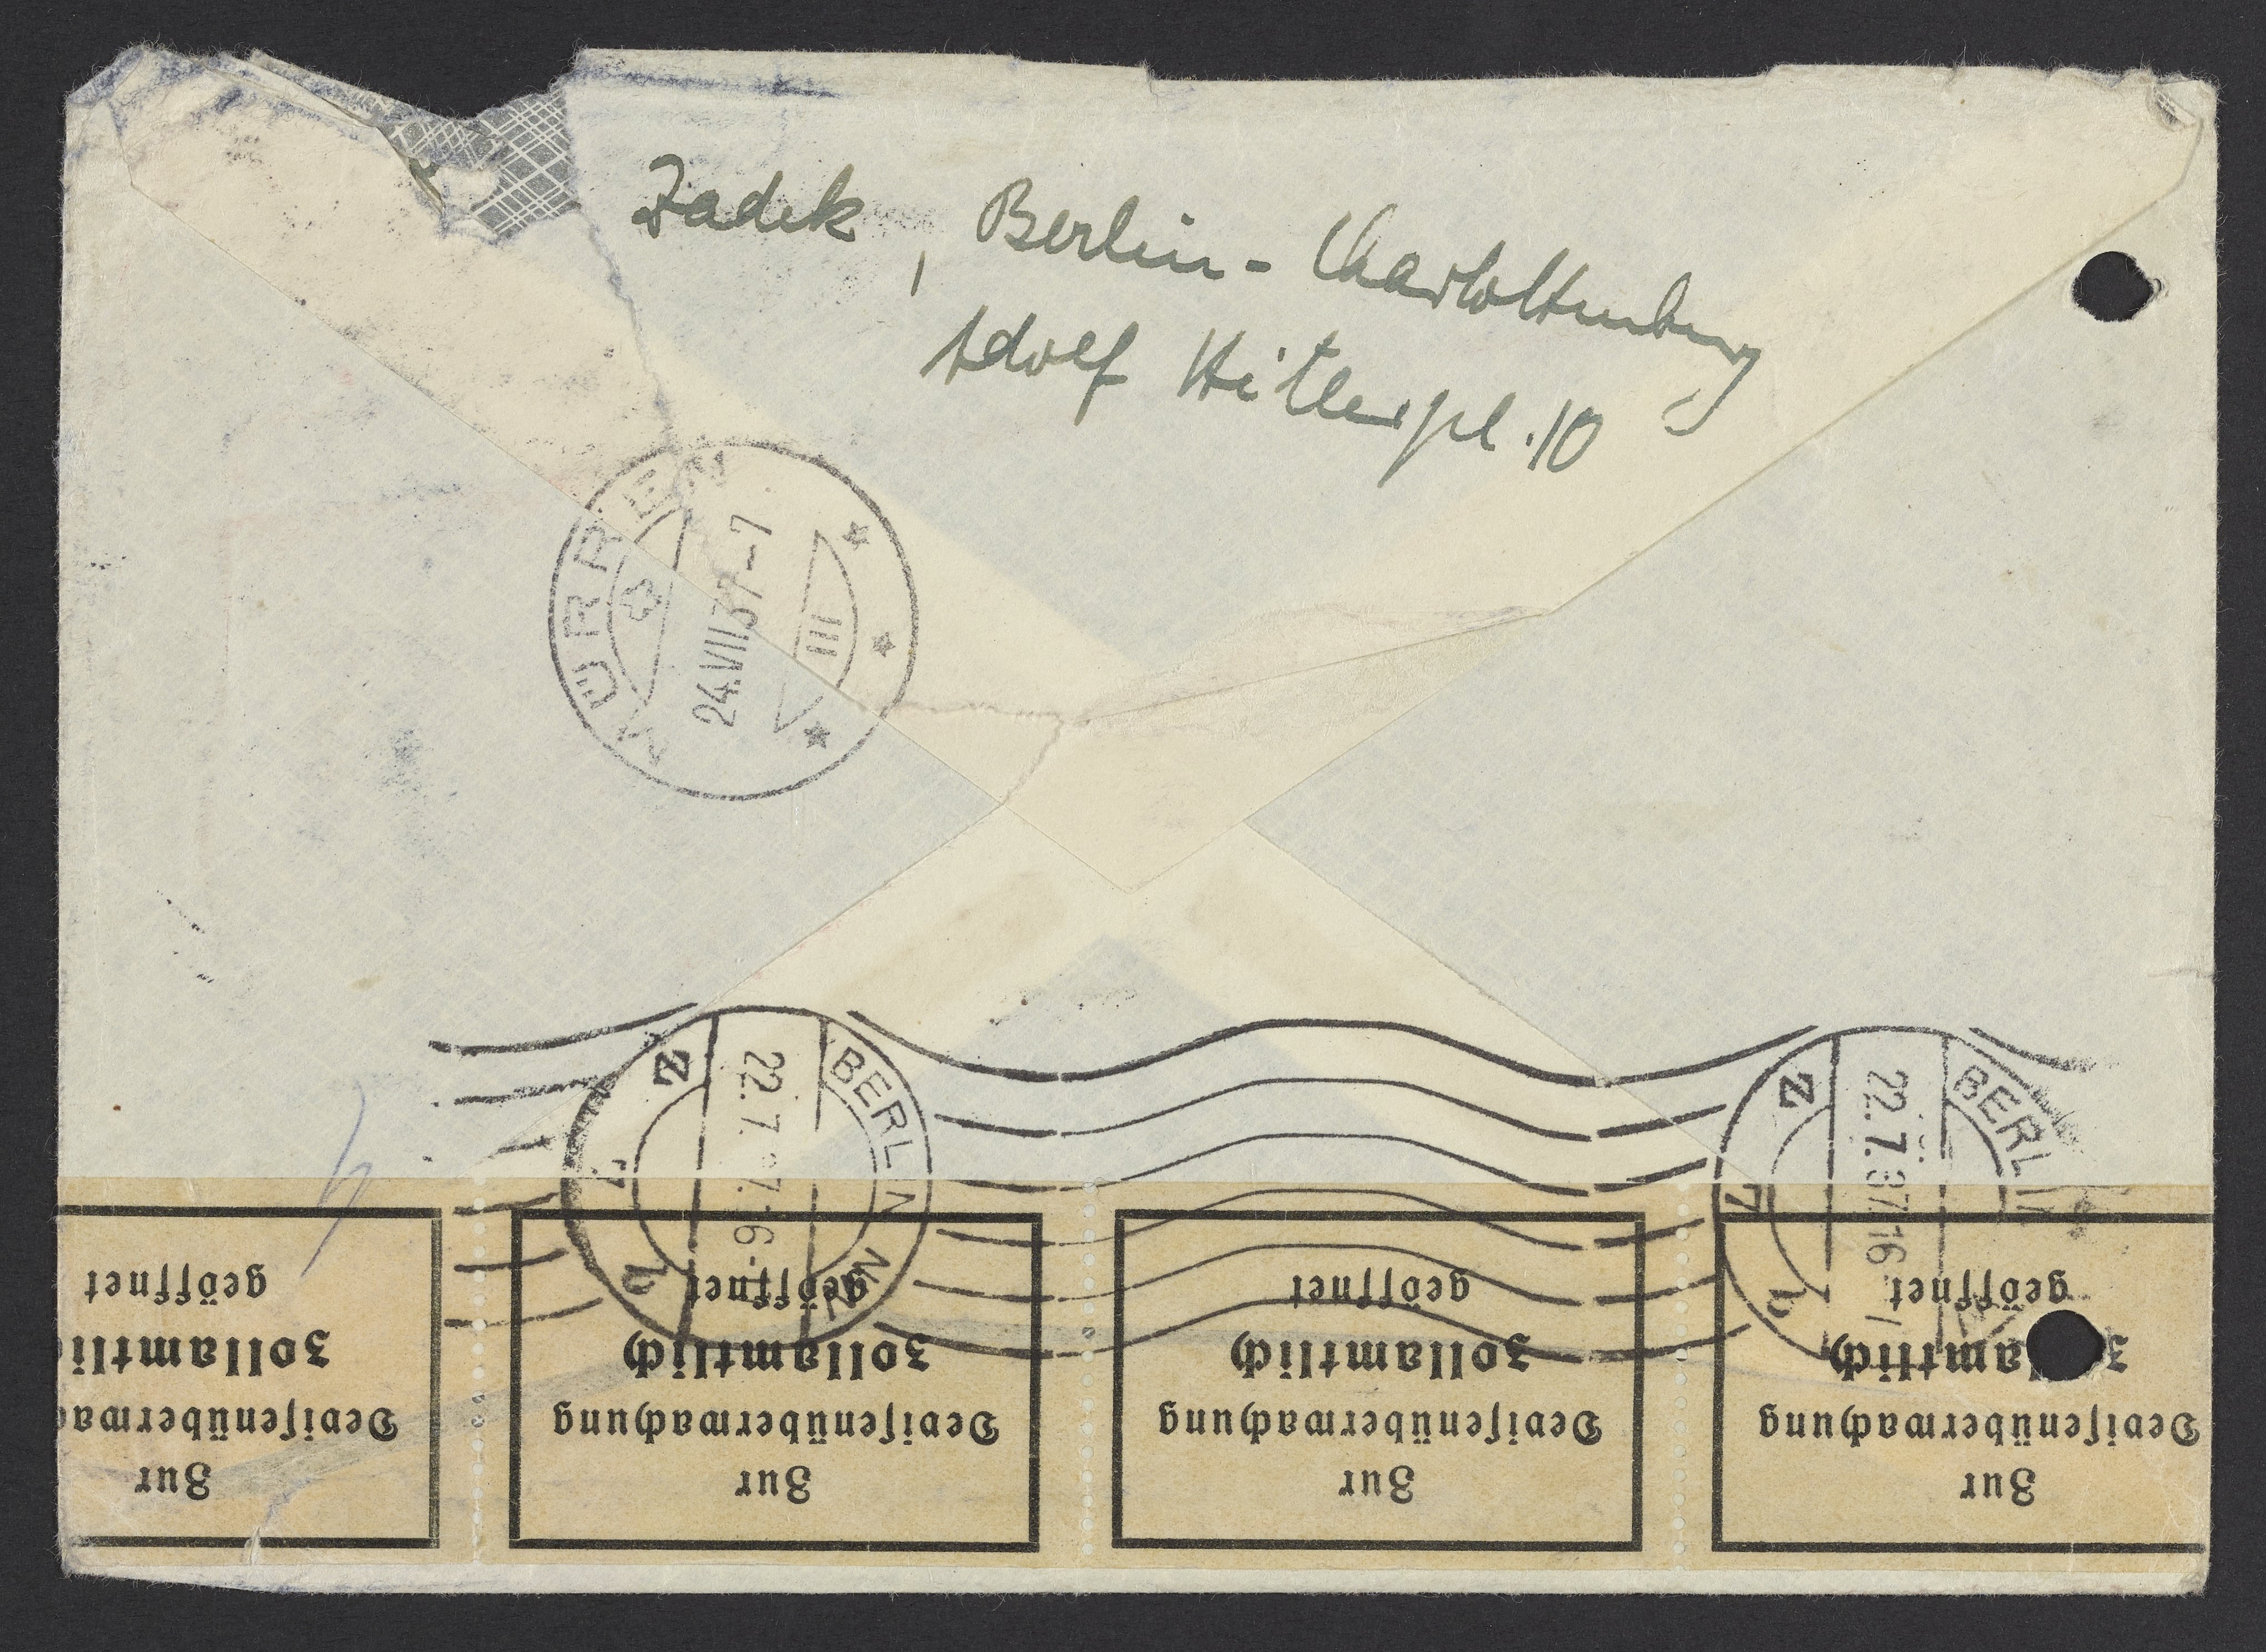 Zadek, Berlin-Charlottenburg
Adolf Hitlerpl. 10
MÜRREN
24.VII.37-7
III
BERLIN
22.7.37.16
BERLIN
22.7.37.16
Zur
Devisenüberwa
zollamtli
geöffnet
Zur
Devisenüberwachung
zollamtlich
geöffnet
Zur
Devisenüberwachung
zollamtlich
geöffnet
Zur
Devisenüberwachung
geöffnet